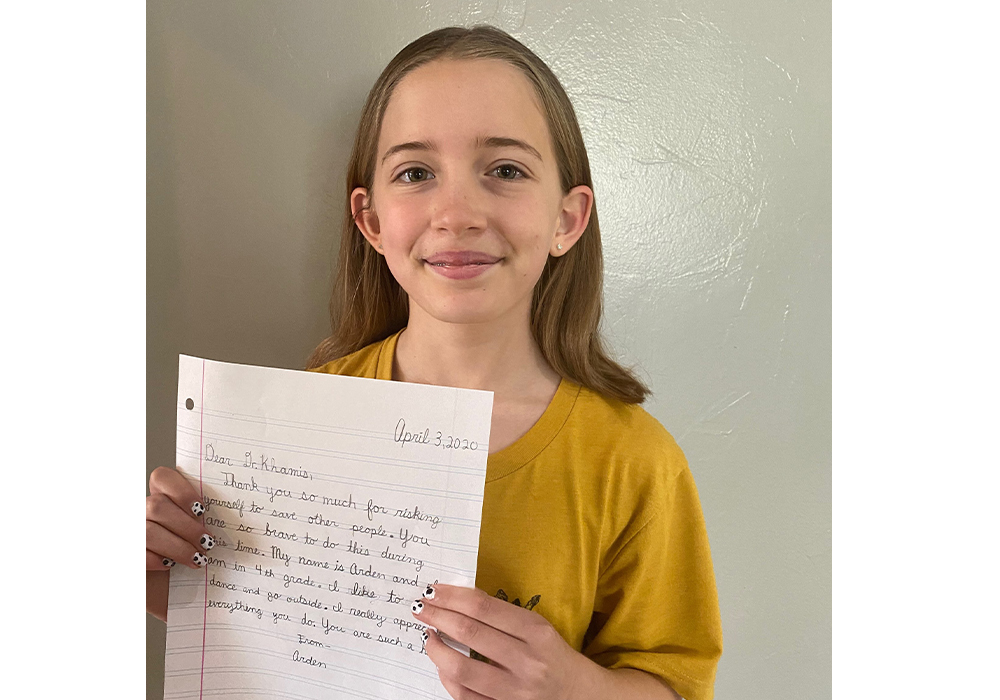 April 3, 2020
Dear Dr. Khamis,
Thank you so much for risking
yourself to save other people. You
are so brave to do this during
this time. My name is Arden and
am in 4th grade. I like to
dance and go outside. I really
everything you do. You are such a
From-
Arden